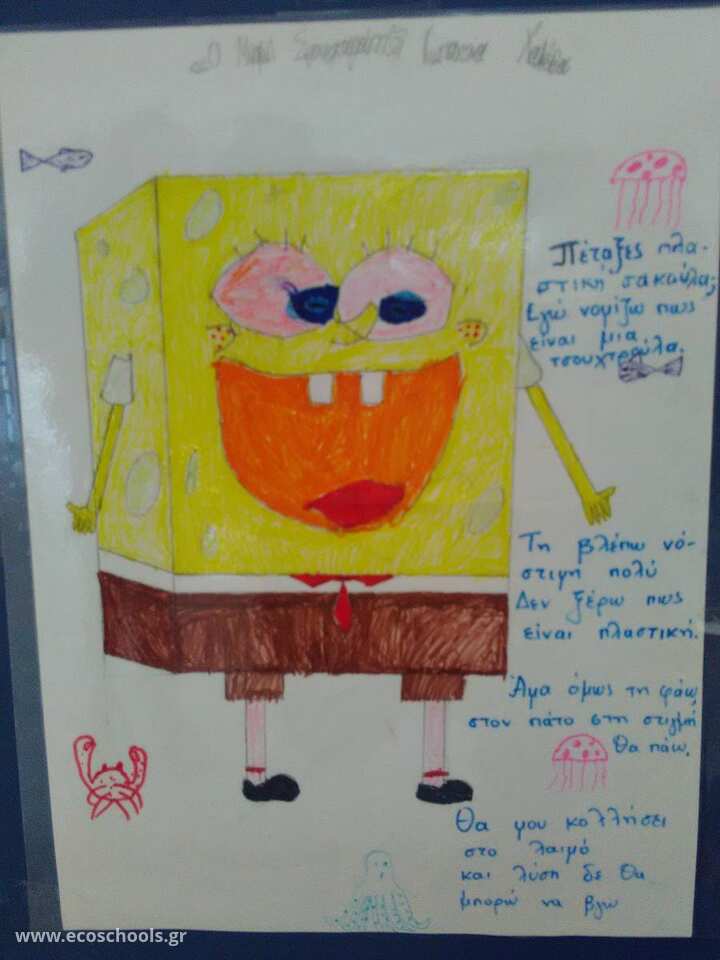 Ο
Πέταξες πλα-
στική σακούλα;
Εγώ νομίζω πως
είναι μια
τσουχτρούλα.
Τη βλέπω νό-
στιμη πολύ
Δεν ξέρω πως
είναι πλαστική.
Άμα όμως τη φάω
στον πάτο στη στιγμή
θα πάω.
Θα μου κολλήσει
στο λαιμό
και λύση δε θα
μπορώ να βγω
www.ecoschools.gr